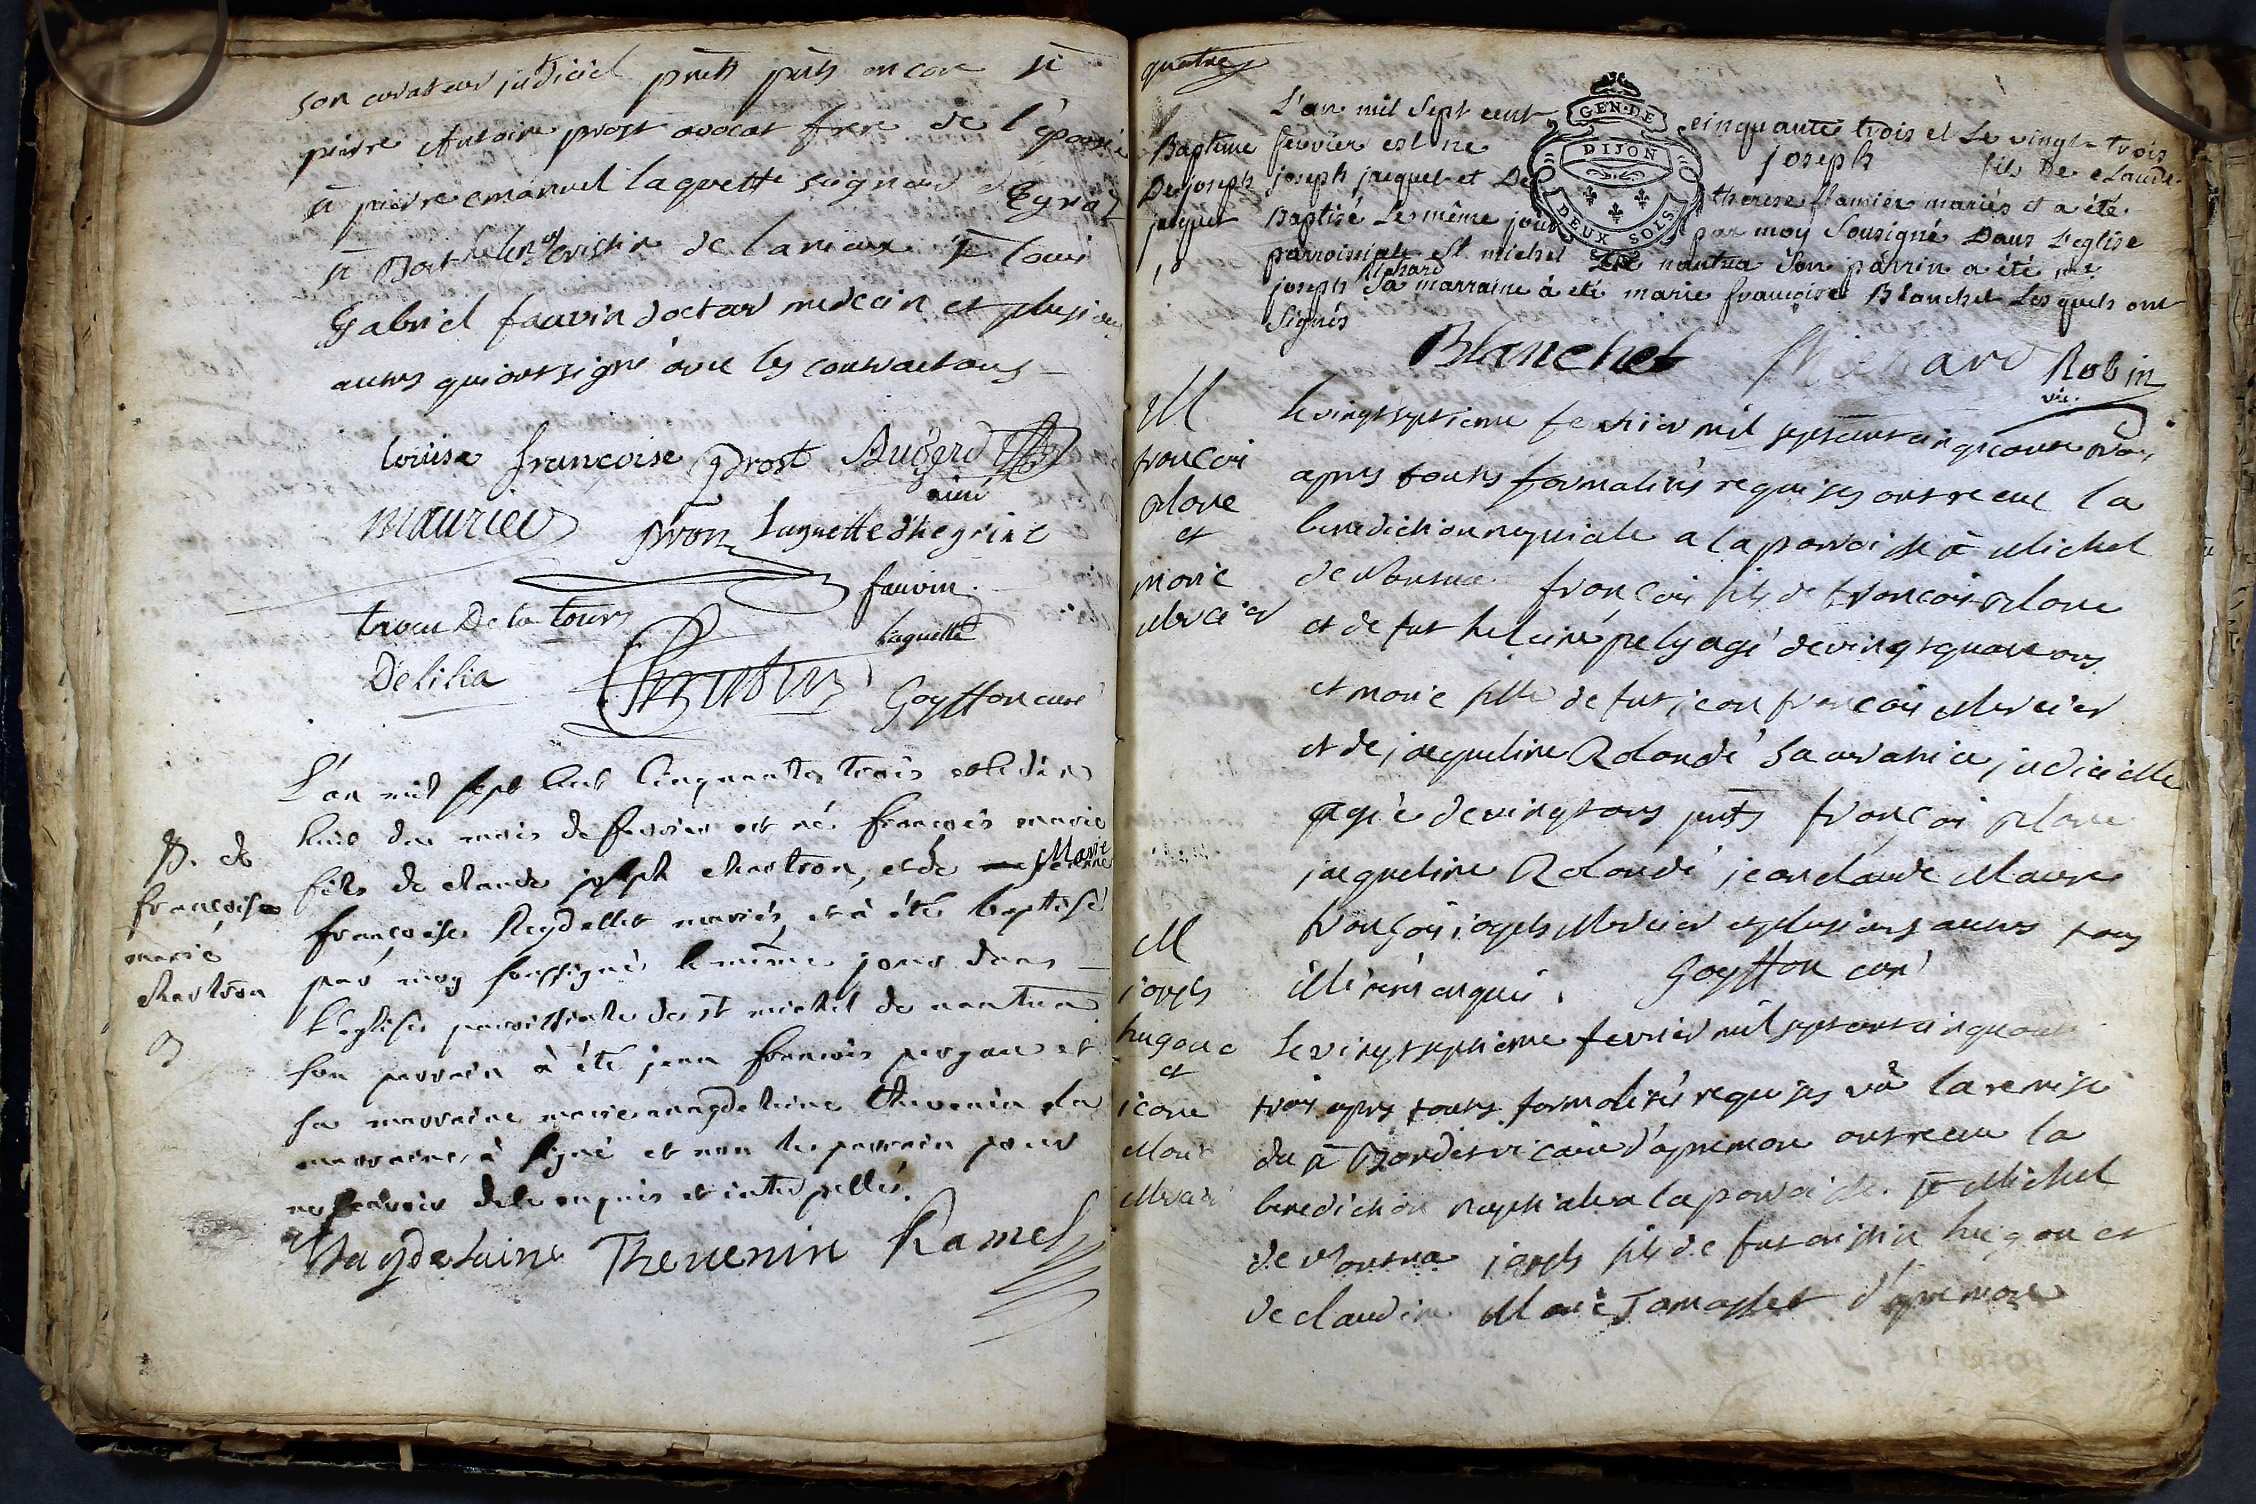 son curateur judiciel pnts puis encore sr
pierre Antoine prost avocat frere de l'epouse
sr pierre emanuel laguette seigneur d'hegria
sr Barthelemy cristin de la rieux sr louis
Gabriel fauvin docteur medecin et plusieurs
autres qui ont signé avec les contractans
louise françoise prost Augerd
ainé
Maurier pron laguette d'hegriat
fauvin
trocu De la tours
laguette
Delilia
Goyffon curé
L'an mil sept cent cinquante trois et le dix
huit du mois de fevrier est né françois marie
fils de claude joseph chartron, et de Marie
françoise Reydellet mariés, et à été baptisé
par moy soussigné le même jour dans
l'eglise parroissiale de st michel de nantua
son parrain à été jean françois et
sa marraine marie magdelaine thevenin la
marraine à signé et non le parrain pour
ne sçavoir de ce enquis et interpellés.
B. de
françoise
marie
chartron
Magdelaine Thevenin Ramel
quatre
GEN. DE
DIJON
DEUX SOLS
L'an mil sept cent cinquante trois et Le vingt-trois
fevrier est né joseph fils De claude
joseph jacquet et De therese flamier mariés et a été
Baptisé Le même jour par moy Sousigné Dans L'eglise
parroissiale st michel De nantua Son parrin a été me
joseph Michard Sa marraine à eté marie françoise Blanchet Lesquels ont
signés
Baptême
De joseph
jacquet
Blanchet Michard Robin
vic.
le vingt septieme fevrier mil sept cent cinquante trois
apres toutes formalités requises ont receu la
benediction nuptiale a la paroisse st Michel
de Nantua françois fils de françois Alone
et de fut heleine pely agé de vingt quatre ans
et marie fille de fut jean françois Mercier
et de jacqueline Rolande sa curatrice judicielle
agée de vingt ans pnts françois Alone
jacqueline Rolande jean claude Maire
françois joseph Mercier et plusieurs autres tous
illiteré enquis. Goyffon curé
M
francois
Alone
et
marie
Mercier
le vingt septieme fevrier mil sept cent cinquante
trois apres toutes formalités requises vû la remise
du sr Bordet vicaire d'apremon ont receu la
benediction nuptiale a la paroisse st Michel
de Nantua joseph fils de fut hugon et
de claudine Marie Tamasset d'apremon
M
joseph
hugon
et
jeane
Marie
Mercier